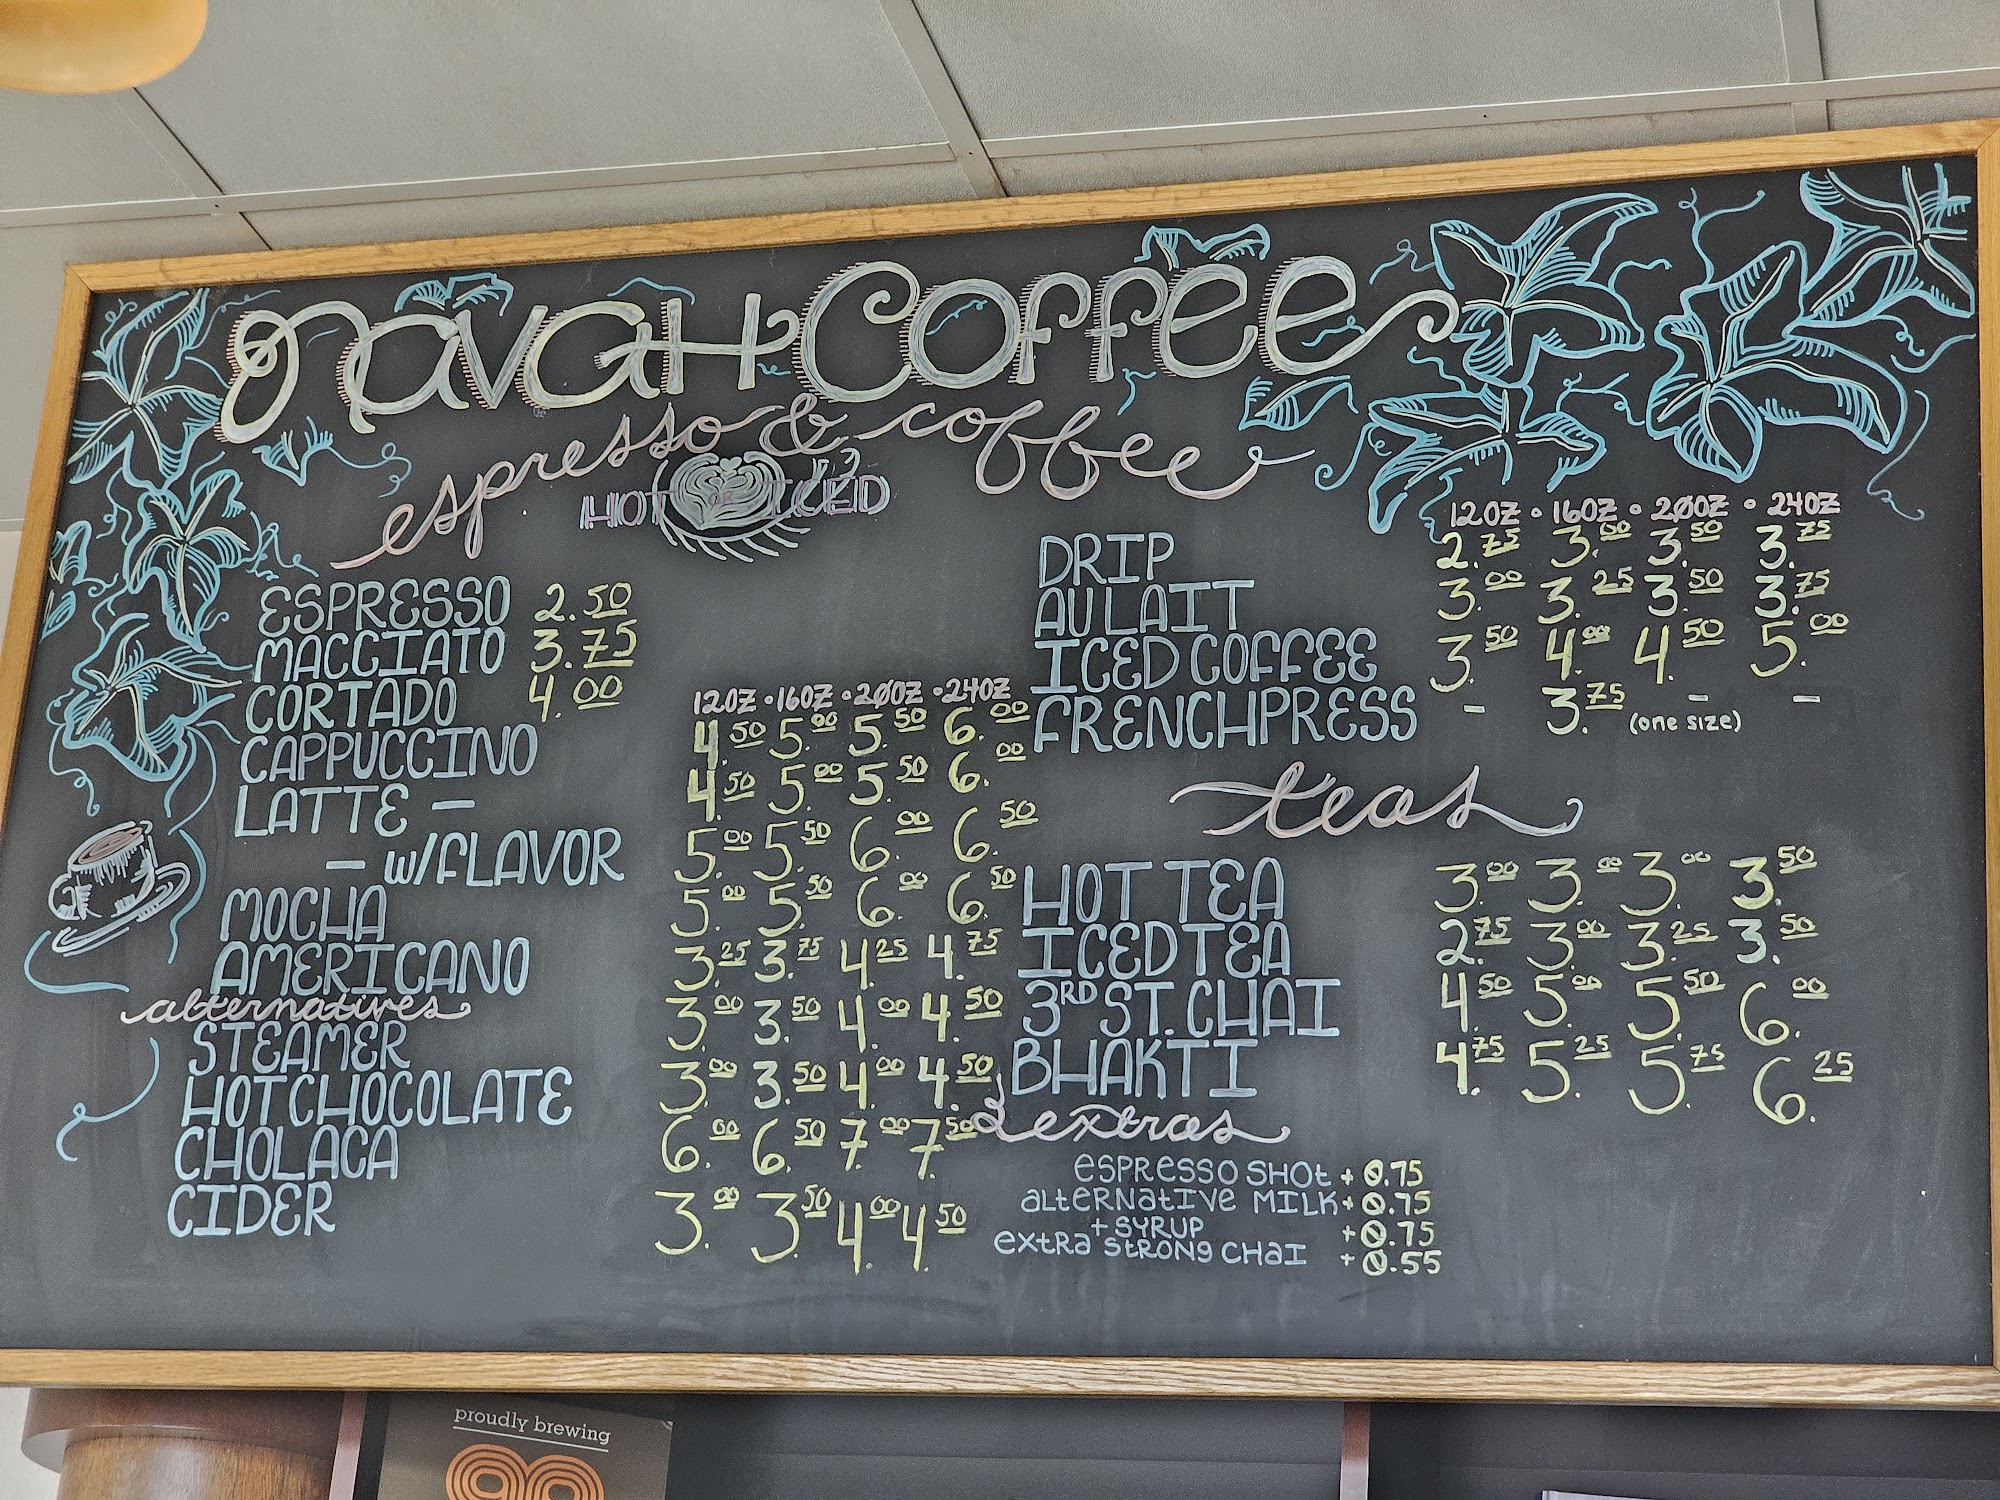 NavaH Coffee
espresso & coffee
HOT OR ICED
ESPRESSO 2.50
MACCIATO 3.75
CORTADO 4.00
12OZ • 16OZ • 20OZ • 24OZ
CAPPUCCINO 4.50 5.00 5.50 6.00
LATTE - 4.50 5.00 5.50 6.00
- W/FLAVOR 5.00 5.50 6.00 6.50
MOCHA 5.00 5.50 6.00 6.50
AMERICANO 3.25 3.75 4.25 4.75
alternatives
STEAMER 3.00 3.50 4.00 4.50
HOT CHOCOLATE 3.00 3.50 4.00 4.50
CHOLACA 6.00 6.50 7.00 7.50
CIDER 3.00 3.50 4.00 4.50
12OZ • 16OZ • 20OZ • 24OZ
DRIP 2.75 3.00 3.50 3.75
AU LAIT 3.00 3.25 3.50 3.75
ICED COFFEE 3.50 4.00 4.50 5.00
FRENCH PRESS - 3.75 - -
(one size)
teas
HOT TEA 3.00 3.00 3.00 3.50
ICED TEA 2.75 3.00 3.25 3.50
3RD ST. CHAI 4.50 5.00 5.50 6.00
BHAKTI 4.75 5.25 5.75 6.25
extras
ESPRESSO SHOT + 0.75
ALTERNATIVE MILK + 0.75
+ SYRUP + 0.75
EXTRA STRONG CHAI + 0.55
proudly brewing